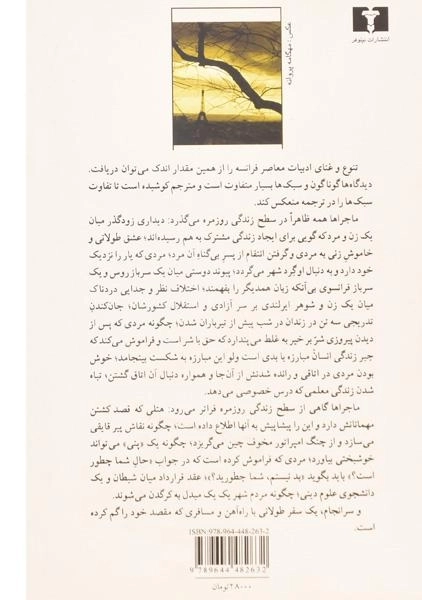 انتشارات نیلوفر
عکس: مهگامه پروانه
تنوع و غنای ادبیات معاصر فرانسه را از همین مقدار اندک می‌توان دریافت.
دیدگاه‌ها گوناگون و سبک‌ها بسیار متفاوت است و مترجم کوشیده است تا تفاوت
سبک‌ها را در ترجمه منعکس کند.
ماجراها همه ظاهراً در سطح زندگی روزمره می‌گذرد: دیداری زودگذر میان
یک زن و مرد که گویی برای ایجاد زندگی مشترک به هم رسیده‌اند؛ عشق طولانی و
خاموش زنی به مردی و گرفتن انتقام از پسر بی‌گناه آن مرد؛ مردی که یار را نزدیک
خود دارد و به دنبال او گرد شهر می‌گردد؛ پیوند دوستی میان یک سرباز روس و یک
سرباز فرانسوی بی‌آنکه زبان همدیگر را بفهمند؛ اختلاف نظر و جدایی دردناک
میان یک زن و شوهر ایرلندی بر سر آزادی و استقلال کشورشان؛ جان‌کندن
تدریجی سه تن در زندان در شب پیش از تیرباران شدن؛ چگونه مردی که پس از
دیدن پیروزی شر بر خیر به غلط می‌پندارد که حق با شر است و فراموش می‌کند که
جبر زندگی انسان مبارزه با بدی است ولو این مبارزه به شکست بینجامد؛ خوش
بودن مردی در اتاقی و رانده شدنش از آن‌جا و همواره دنبال آن اتاق گشتن؛ تباه
شدن زندگی معلمی که درس خصوصی می‌دهد.
ماجراها گاهی از سطح زندگی روزمره فراتر می‌رود: هتلی که قصد کشتن
مهمانانش دارد و این را پیشاپیش به آنها اطلاع داده است؛ چگونه نقاش پیر قایقی
می‌سازد و از چنگ امپراتور مخوف چین می‌گریزد؛ چگونه یک «پنی» می‌تواند
خوشبختی بیاورد؛ مردی که فراموش کرده است که در جواب «حال شما چطور
است؟» باید بگوید «بد نیستم، شما چطورید؟»؛ عقد قرارداد میان شیطان و یک
دانشجوی علوم دینی؛ چگونه مردم شهر یک یک مبدل به کرگدن می‌شوند.
و سرانجام، یک سفر طولانی با راه‌آهن و مسافری که مقصد خود را گم کرده
است.
ISBN: 978-964-448-263-2
9 789644 482632
۲۸۰۰۰ تومان